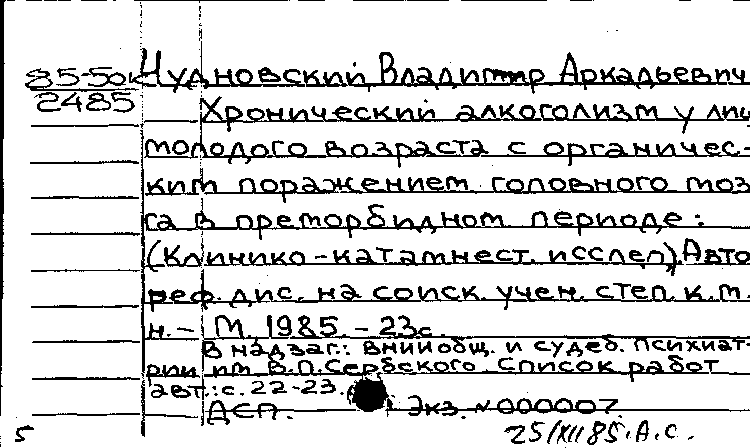 85-50к Чудновский Владимир Аркадьевич
2485 Хронический алкоголизм у лиц
молодого возраста с органичес-
ким поражением головного моз
га в преморбидном периоде:
(Клинико-катамнест. исслед). Авто
реф. дис. на соиск. учен. степ. к.м.
н. - М. 1985. - 23с.
В надзаг.: ВНИИ общ. и судеб. психиат-
рии им В.П.Сербского. Список работ
авт.: с. 22-23.
ДСП. Экз. №000007.
5 25/XII 85. А.С.